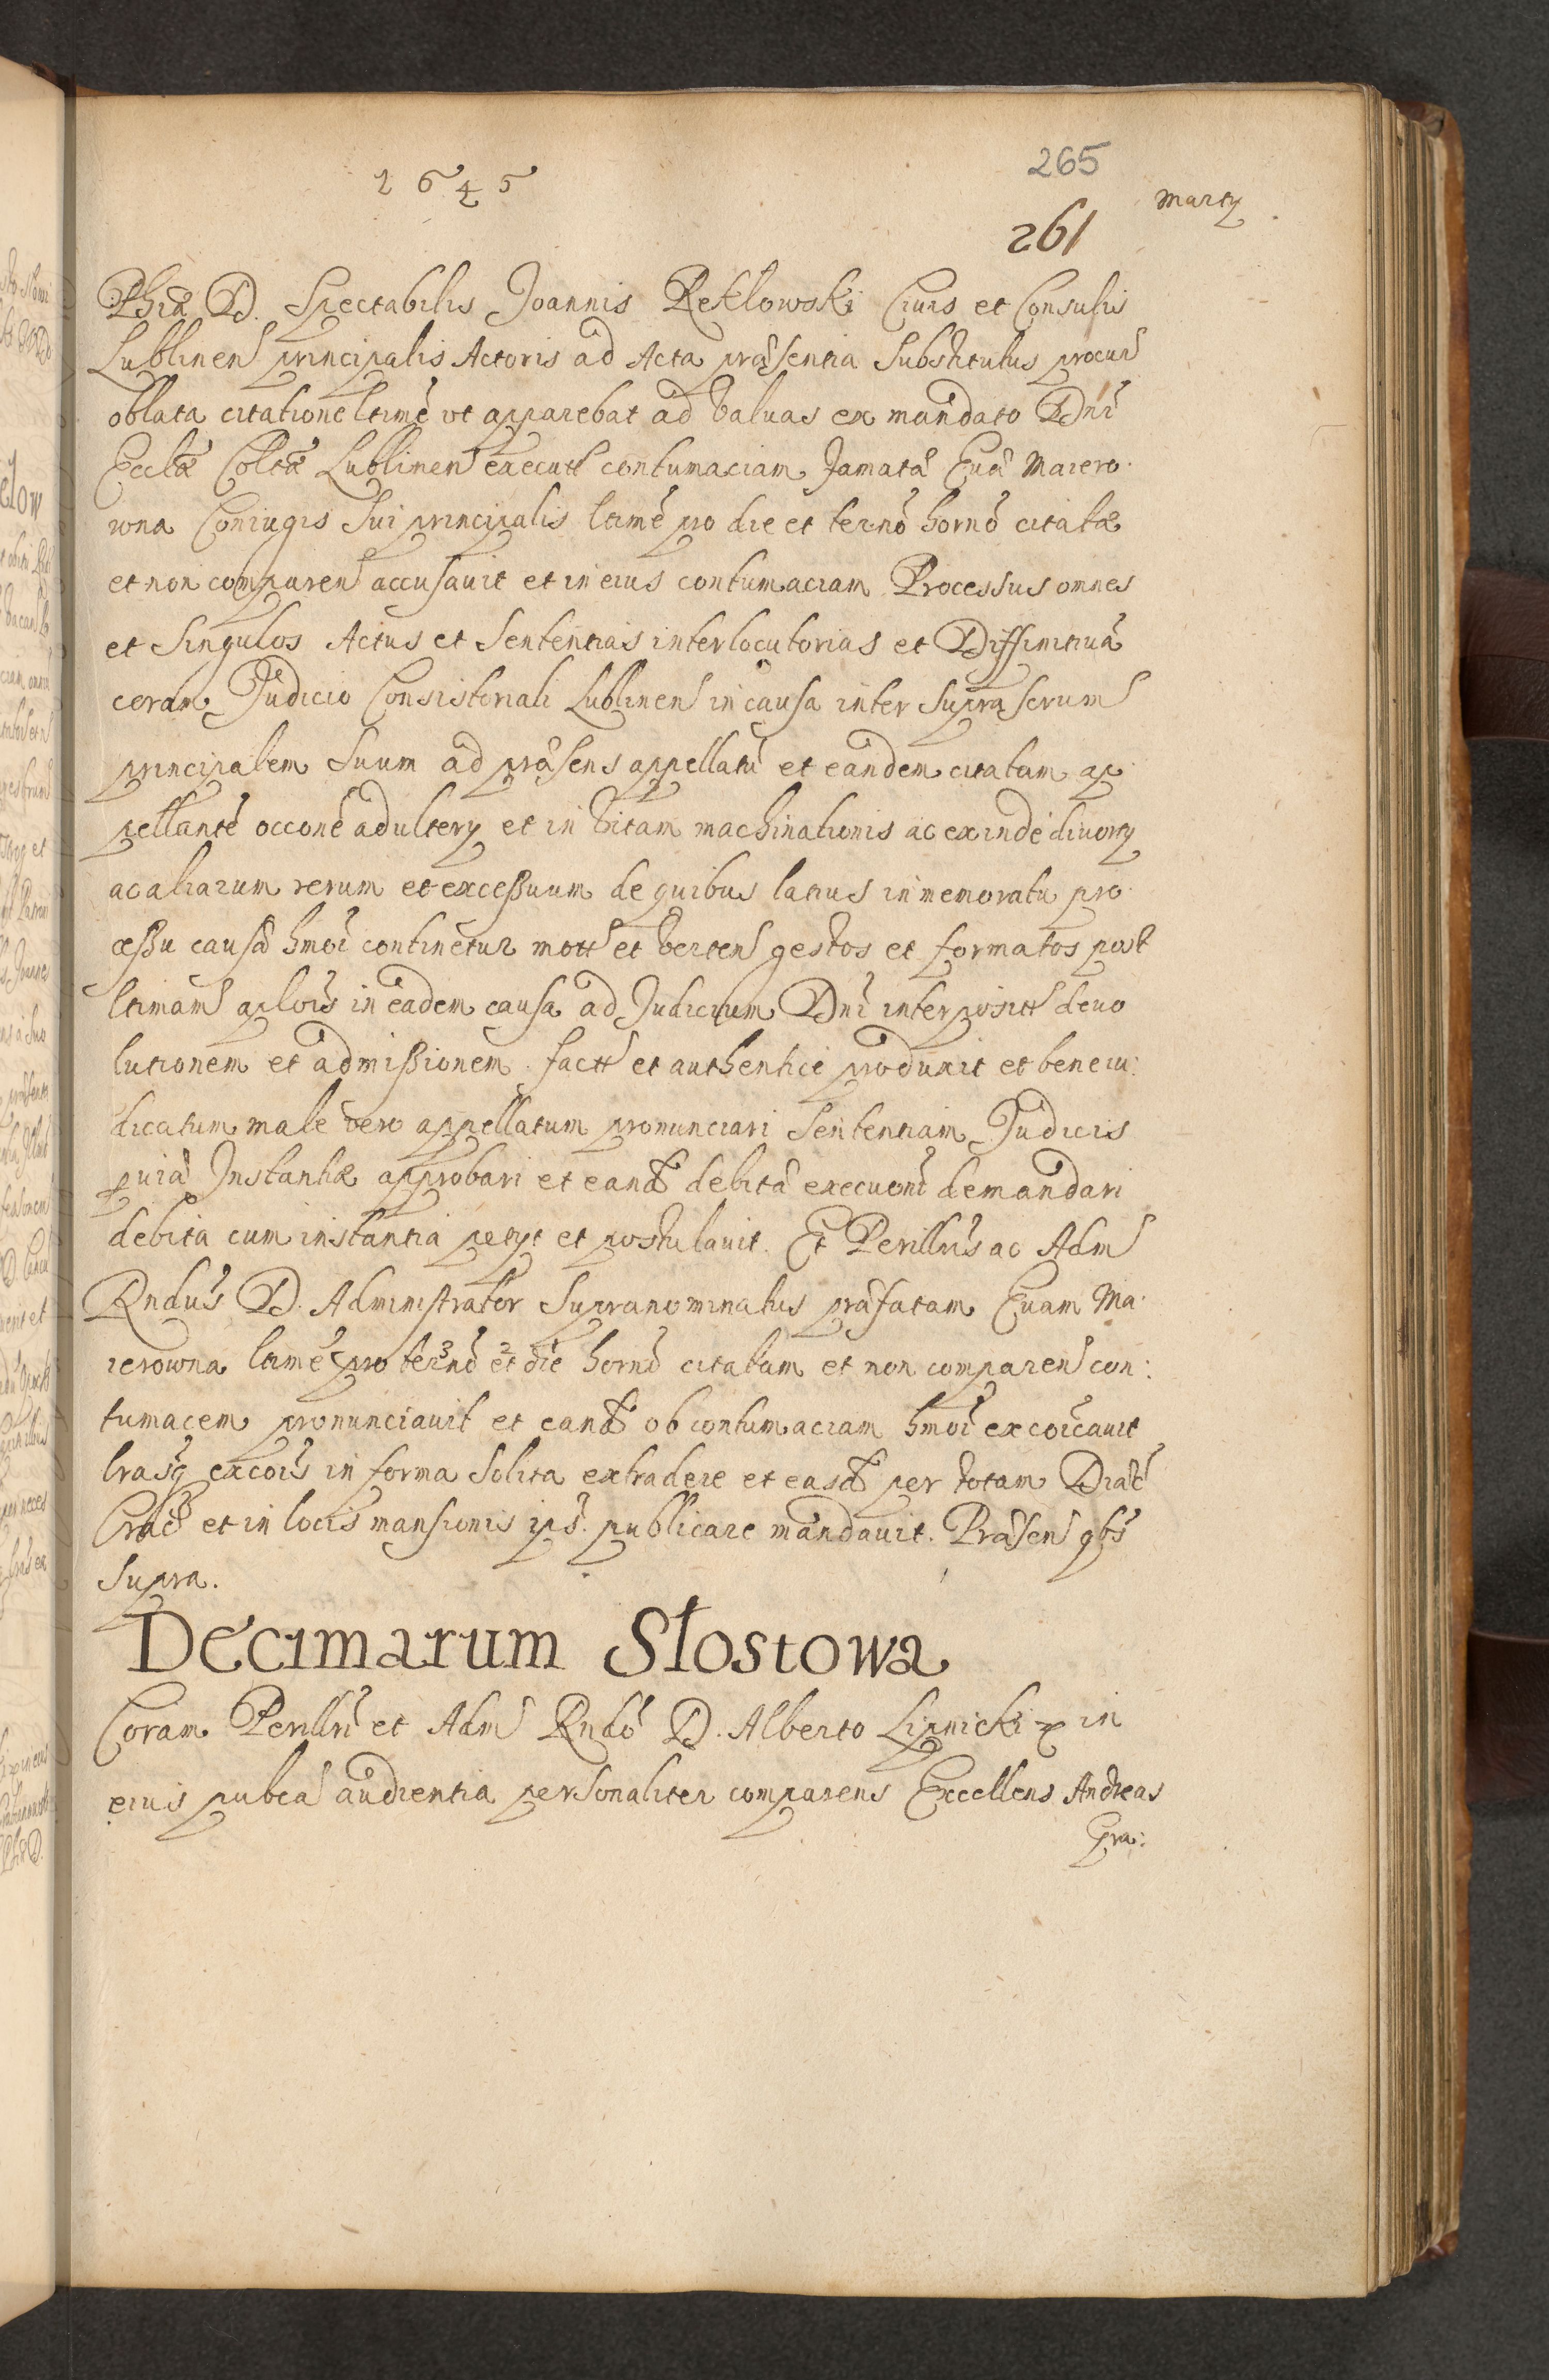 1645
265
Marty
261
Phiæ D. Spectabilis Joannis Reklowski Ciuis et Consulis
Lublinen principalis Actoris ad Acta præsentia Substitutus procur
oblata citatione ltimē vt apparebat ad valuas ex mandato Dnī
Ecclæ Coltæ Lublinen executt contumaciam famatæ Euæ Maiero
wna Coniugis sui principalis ltimē pro die et termō hornō citatæ
et non comparen accusauit et in eius contumaciam Processus omnes
et singulos Actus et Sententias interlocutorias et Diffinitiuā
coram Judicio Consistoriali Lublinen in causa inter supra scrum
principalem suum ad præsens appellatū et eandem citatam ap
pellantē occōne adultery et in vitam machinationis ac exinde diuorty
ac aliarum rerum et exceßuum de quibus latius in memorato pro
ceßu causā hmōi continetur mott et verten gestos et formatos post
ltimam aplōis in eadem causa ad Judicium Dnī interpositt deuo
lutionem et admißionem factt et authentice produxit et bene iu:
dicatum male vero appellatum pronunciari Sententiam Judicis
priæ Instantiæ approbari et eand debitæ execuōni demandari
debita cum instantia petyt et postulauit. Et Perillris ac Adm
Rndus D. Administrator supranominatus præfatam Euam Ma
ierowna ltimē pro termō et die hornō citatam et non comparen con:
tumacem pronunciauit et eand ob contumaciam hmōi excoicauit
lrasq excōis in forma solita extradere et easd per totam Diæc
Crac et in locis mansionis ips. publicare mandauit. Præsen qbs
supra.
Decimarum Słostowa
Coram Perillri et Adm Rndo D. Alberto Lipnicki in
eius pubca audientia personaliter comparens Excellens Andreas
Gra: